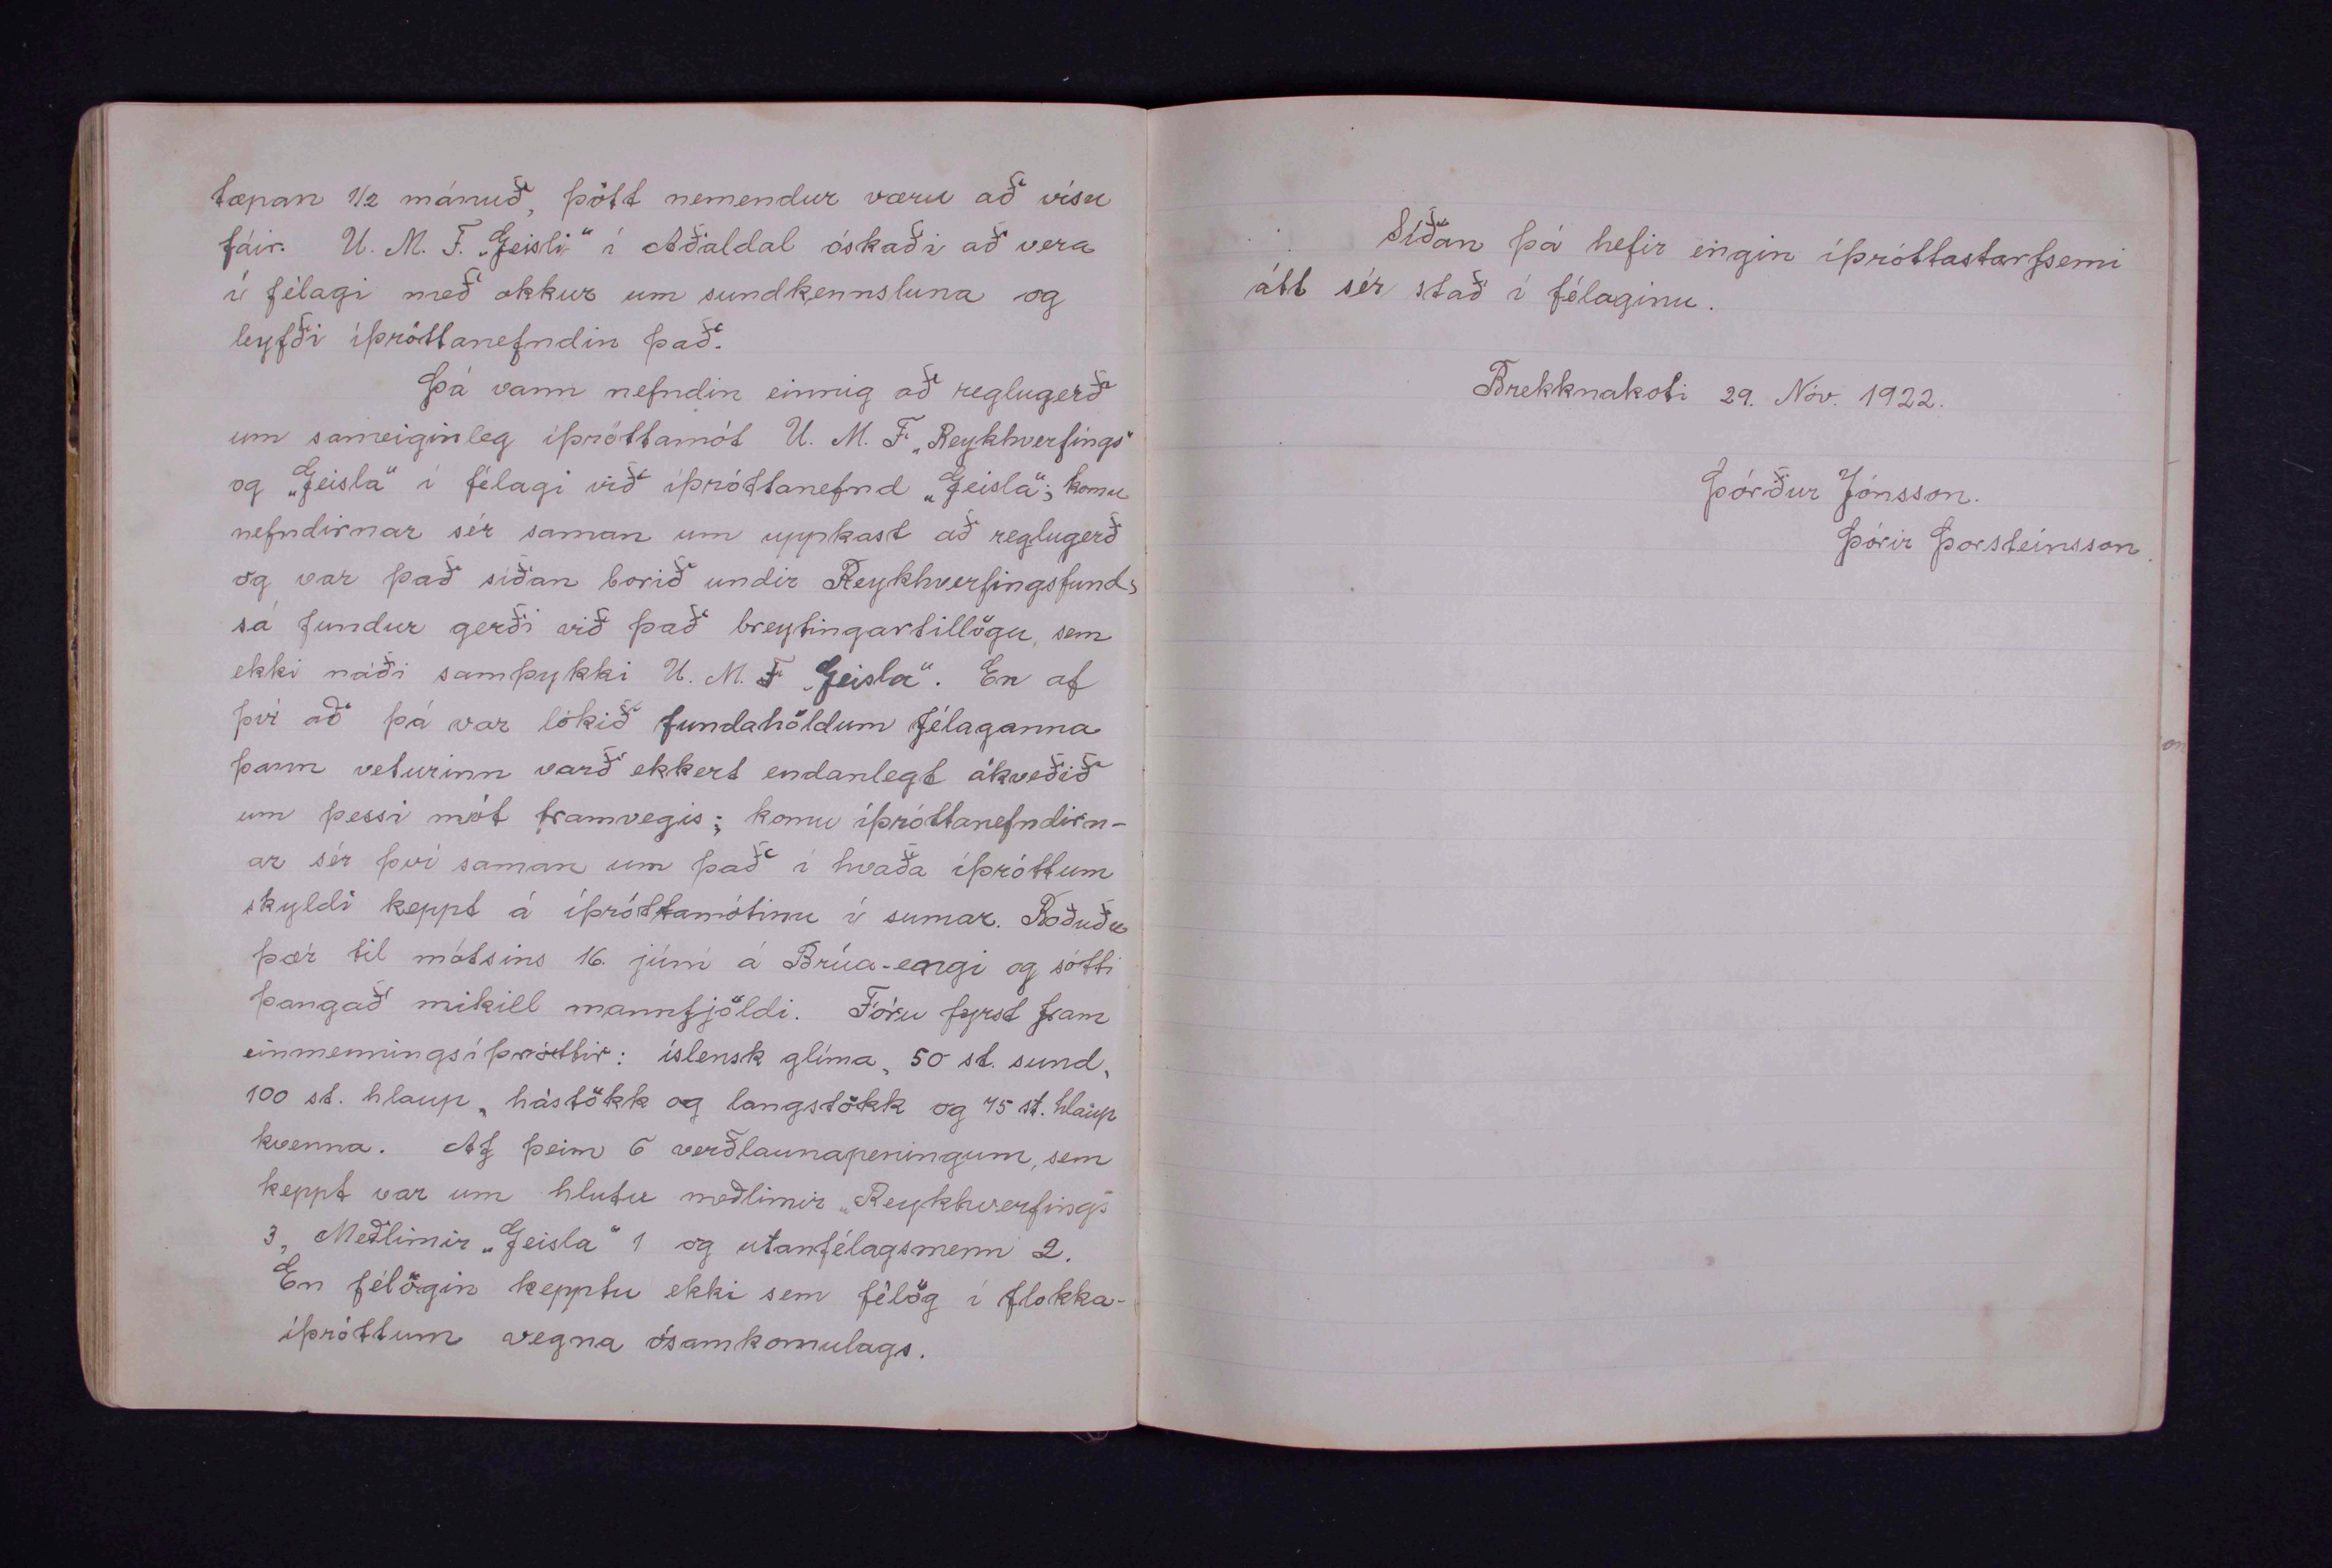 tæpan 1/2 mánuð, þótt nemendur væru að vísu
fáir. U. M. F. „Geisli“ í Aðaldal óskaði að vera
í félagi með okkur um sundkennsluna og
leyfði íþróttanefndin það.
Þá vann nefndin einnig að reglugerð
um sameiginleg íþróttamót U. M. F. „Reykhverfings“
og „Geisla“ í félagi við íþróttanefnd „Geisla“; komu
nefndirnar sér saman um uppkast að reglugerð
og var það síðan borið undir Reykhverfingsfund;
sá fundur gerði við það breytingartillögu, sem
ekki náði samþykki U. M. F „Geisla“. En af
því að þá var lokið fundahöldum félaganna
þann veturinn varð ekkert endanlegt ákveðið
um þessi mót framvegis; komu íþróttanefndirn-
ar sér því saman um það í hvaða íþróttum
skyldi keppt á íþróttamótinu í sumar. Boðuðu
þær til mótsins 16. júní á Brúa-engi og sótti
þangað mikill mannfjöldi. Fóru fyrst fram
einmenningsíþróttir: íslensk glíma, 50 st. sund,
100 st. hlaup, hástökk og langstökk og 75 st. hlaup
kvenna. Af þeim 6 verðlaunapeningum, sem
keppt var um hlutu meðlimir „Reykhverfings“
3, Meðlimir „Geisla“ 1 og utanfélagsmenn 2.
En félögin kepptu ekki sem félög í flokka-
íþróttum vegna ósamkomulags.
Síðan þá hefir engin íþróttastarfsemi
átt sér stað í félaginu.
Brekknakoti 29. Nóv. 1922.
Þórður Jónsson.
Þórir Þorsteinsson.